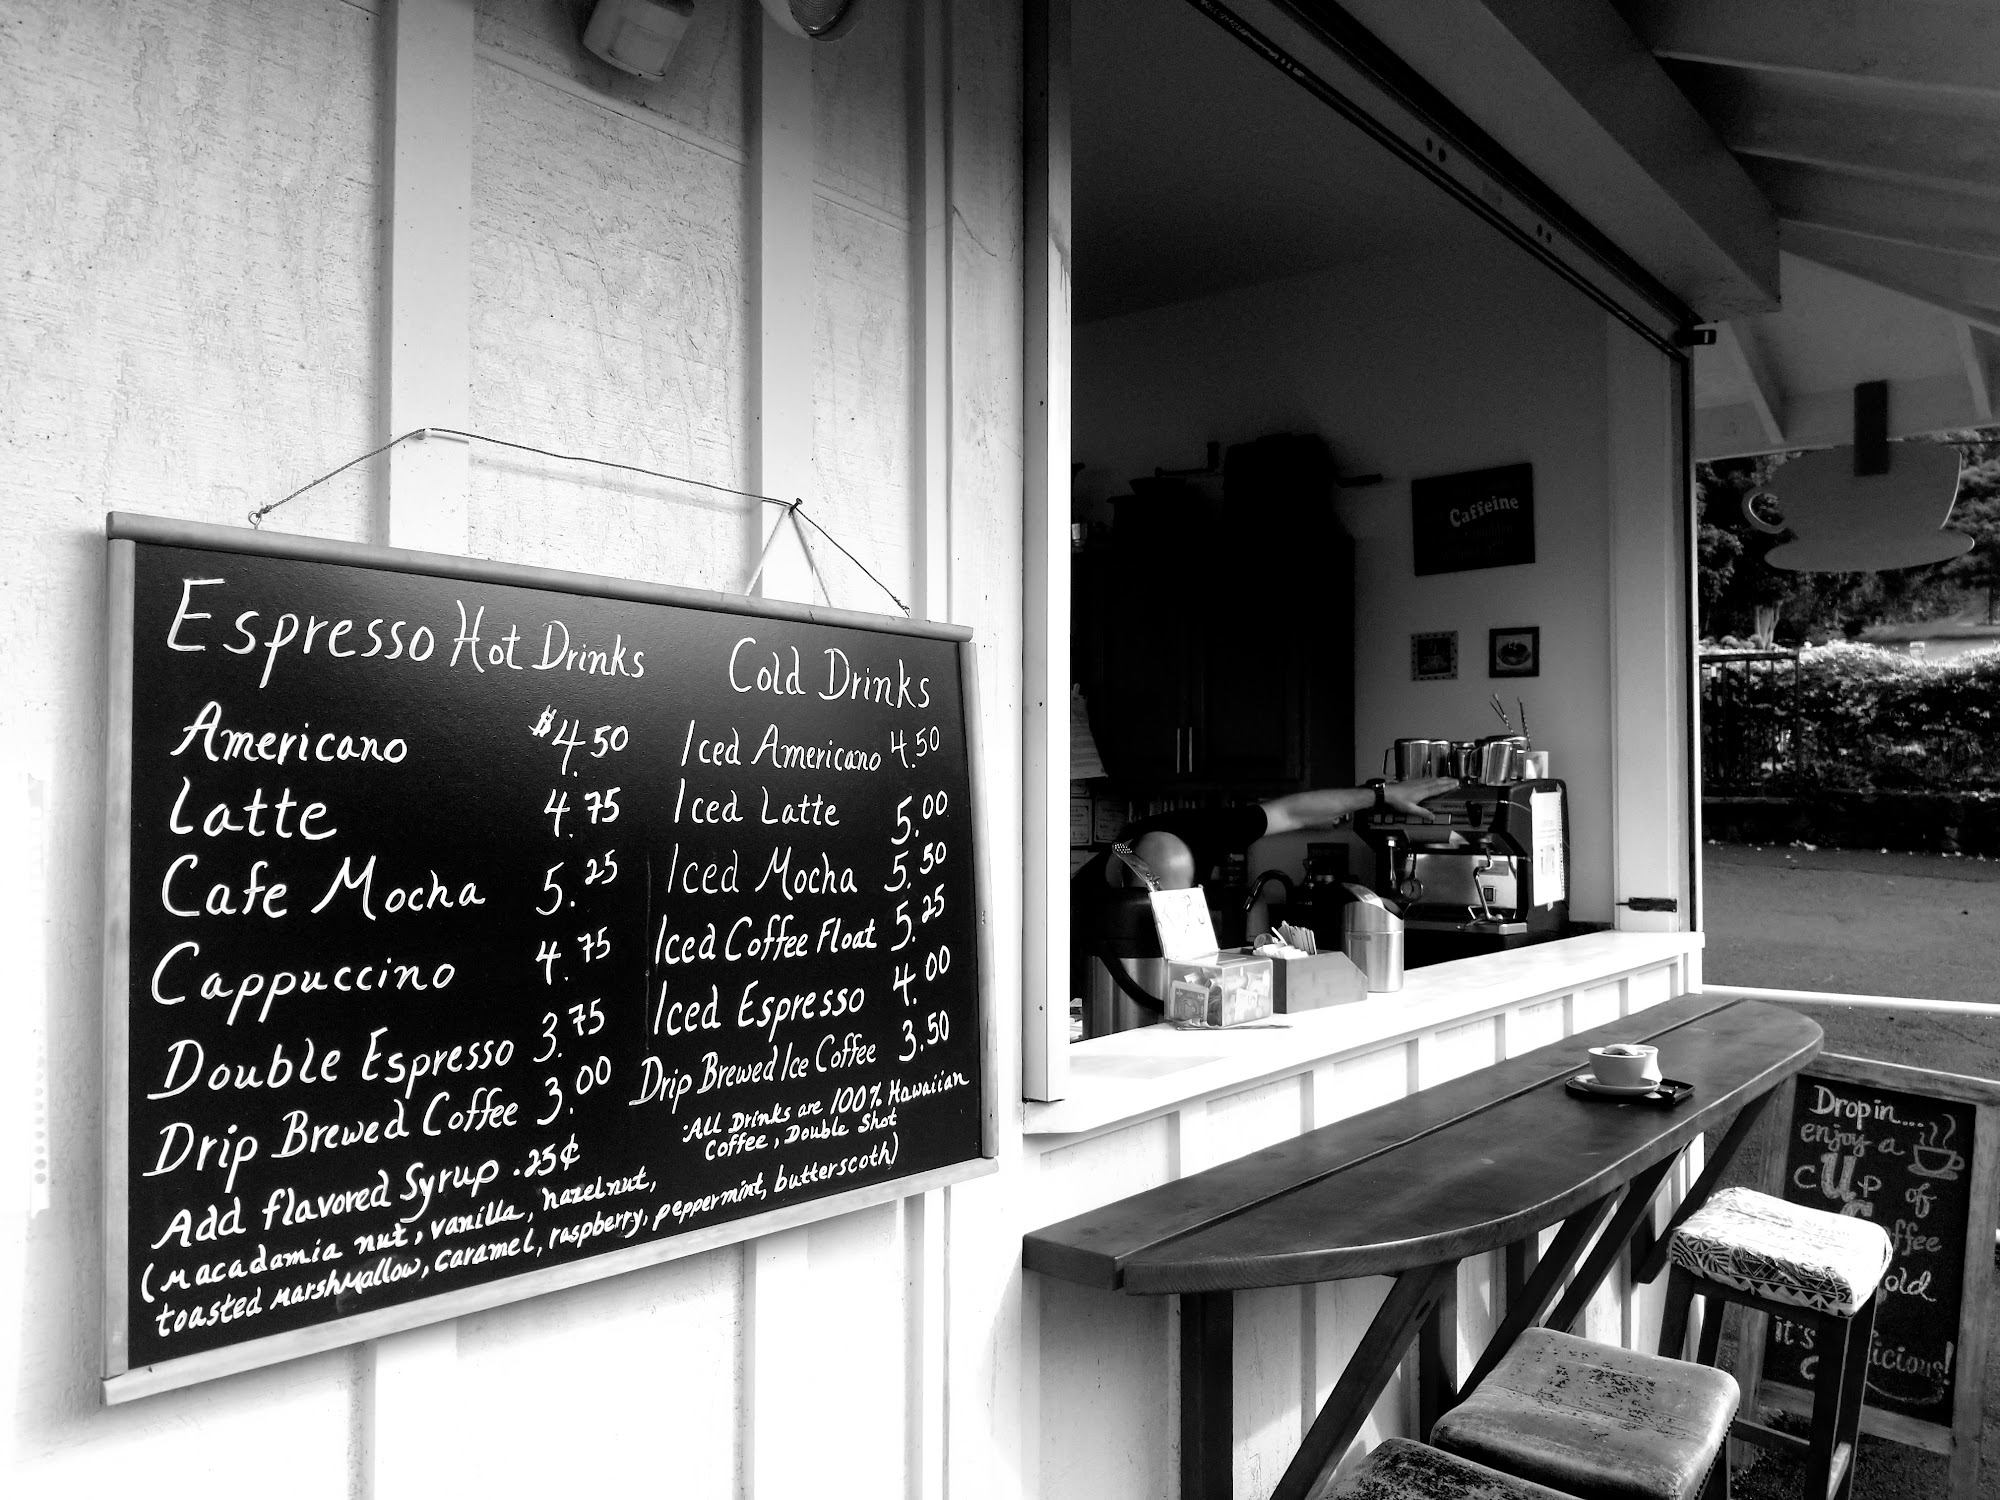 Espresso Hot Drinks
Americano $4.50
Latte 4.75
Cafe Mocha 5.25
Cappuccino 4.75
Double Espresso 3.75
Drip Brewed Coffee 3.00
Add flavored Syrup .25¢
(Macadamia nut, vanilla, hazelnut,
toasted marshmallow, caramel, raspberry, peppermint, butterscoth)
Cold Drinks
Iced Americano 4.50
Iced Latte 5.00
Iced Mocha 5.50
Iced Coffee Float 5.25
Iced Espresso 4.00
Drip Brewed Ice Coffee 3.50
:All Drinks are 100% Hawaiian
Coffee, Double Shot
Caffeine
Drop in...
enjoy a
CUP of
it's